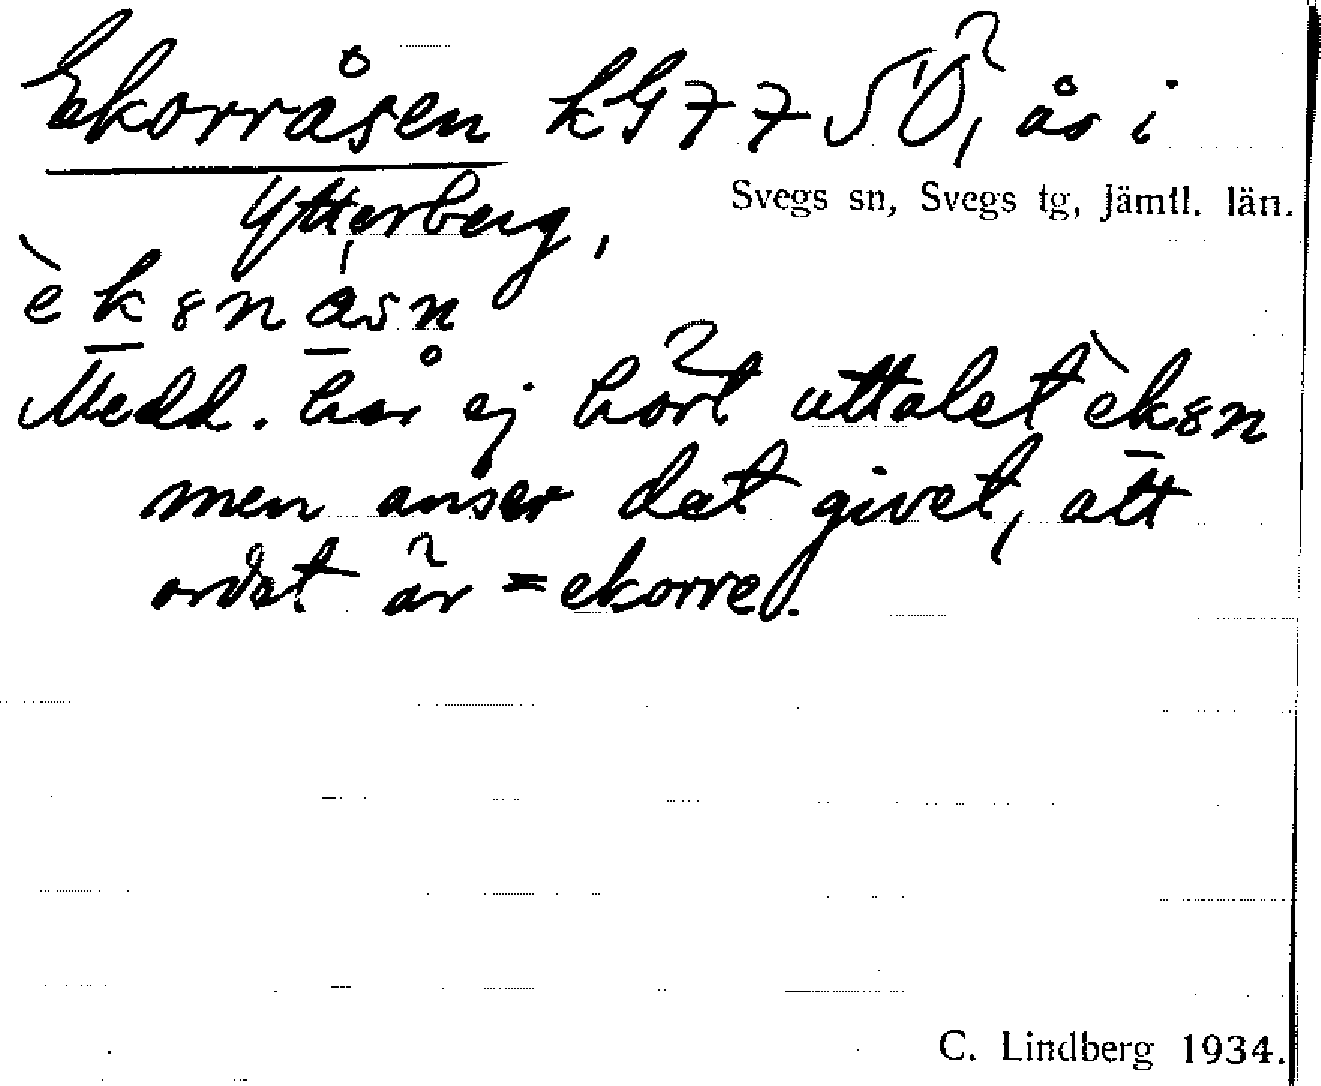 Ekorråsen kG77SÖ, ås i
Svegs sn, Svegs tg, Jämtl. län.
Ytterberg,
èkənåsn
Medd. har ej hört uttalet èkən
men anser det givet, att
ordet är = ekorre.
C. Lindberg 1934.